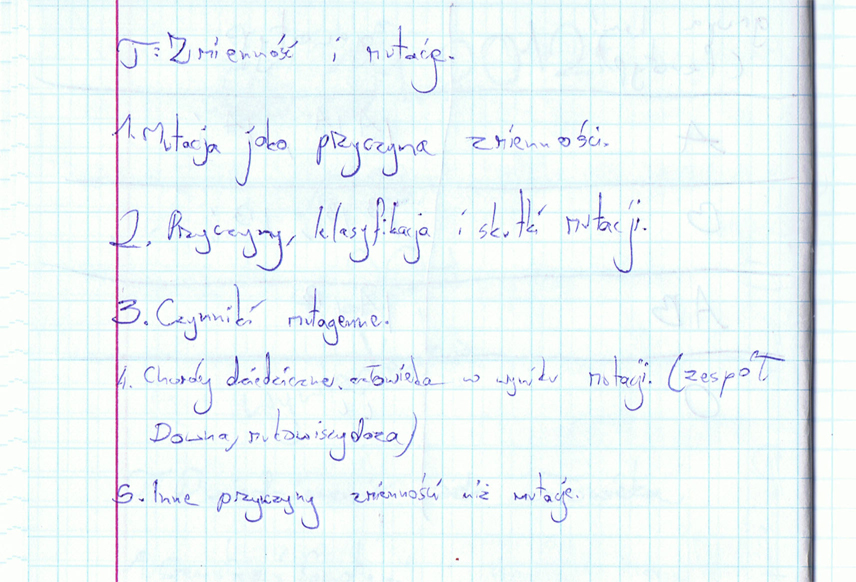 T: Zmienność i mutacje.
1. Mutacja jako przyczyna zmienności.
2. Przyczyny, klasyfikacja i skutki mutacji.
3. Czynniki mutagenne.
4. Choroby dziedziczne człowieka w wyniku mutacji. (zespół
Downa, mukowiscydoza)
5. Inne przyczyny zmienności niż mutacje.